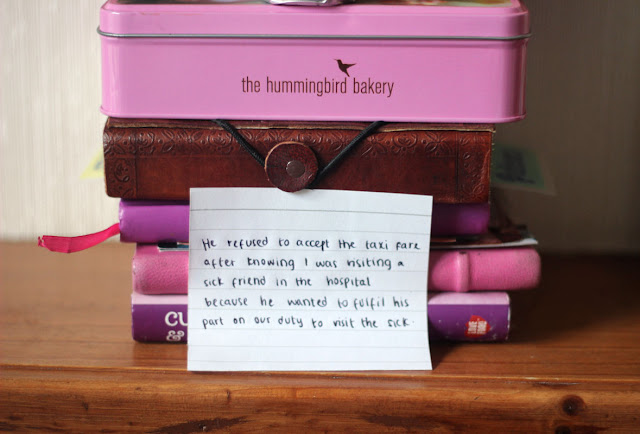 the hummingbird bakery
He refused to accept the taxi fare
after knowing I was visiting a
sick friend in the hospital
because he wanted to fulfil his
part on our duty to visit the sick.
CU
&